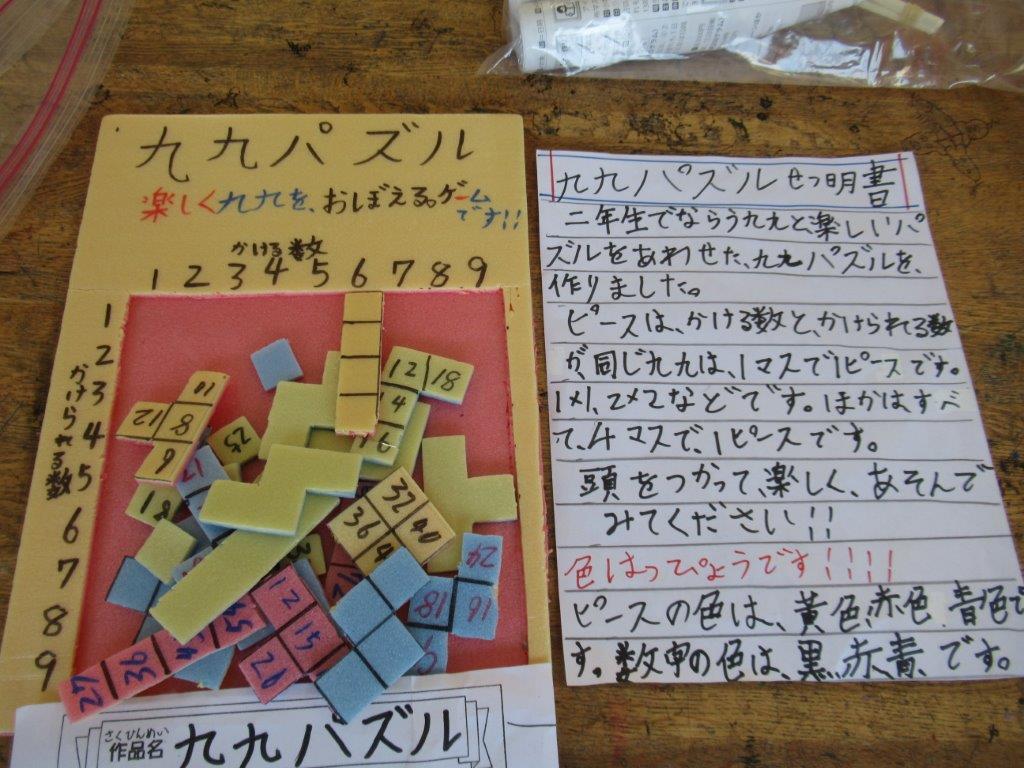 九九パズル
楽しく九九を、おぼえる。ゲーム
です!!
かける数
1 2 3 4 5 6 7 8 9
かけられる数
1
2
3
4
5
6
7
8
9
12 18
10
12 8
6
25
18
32 40
36
24
18 16
12
15
27 36
さくひんめい
作品名
九九パズル
九九パズルせつ明書
二年生でならう九九と、楽しいパ
ズルをあわせた、九九パズルを、
作りました。
ピースは、かける数と、かけられる数
が、同じ九九は、1マスで1ピースです。
1×1、2×2などです。ほかは、すべ
て、4マスで、1ピースです。
頭をつかって、楽しく、あそんで
みてください!!
色はっぴょうです!!!!
ピースの色は、黄色、赤色、青色で
す。数字の色は、黒、赤、青、です。